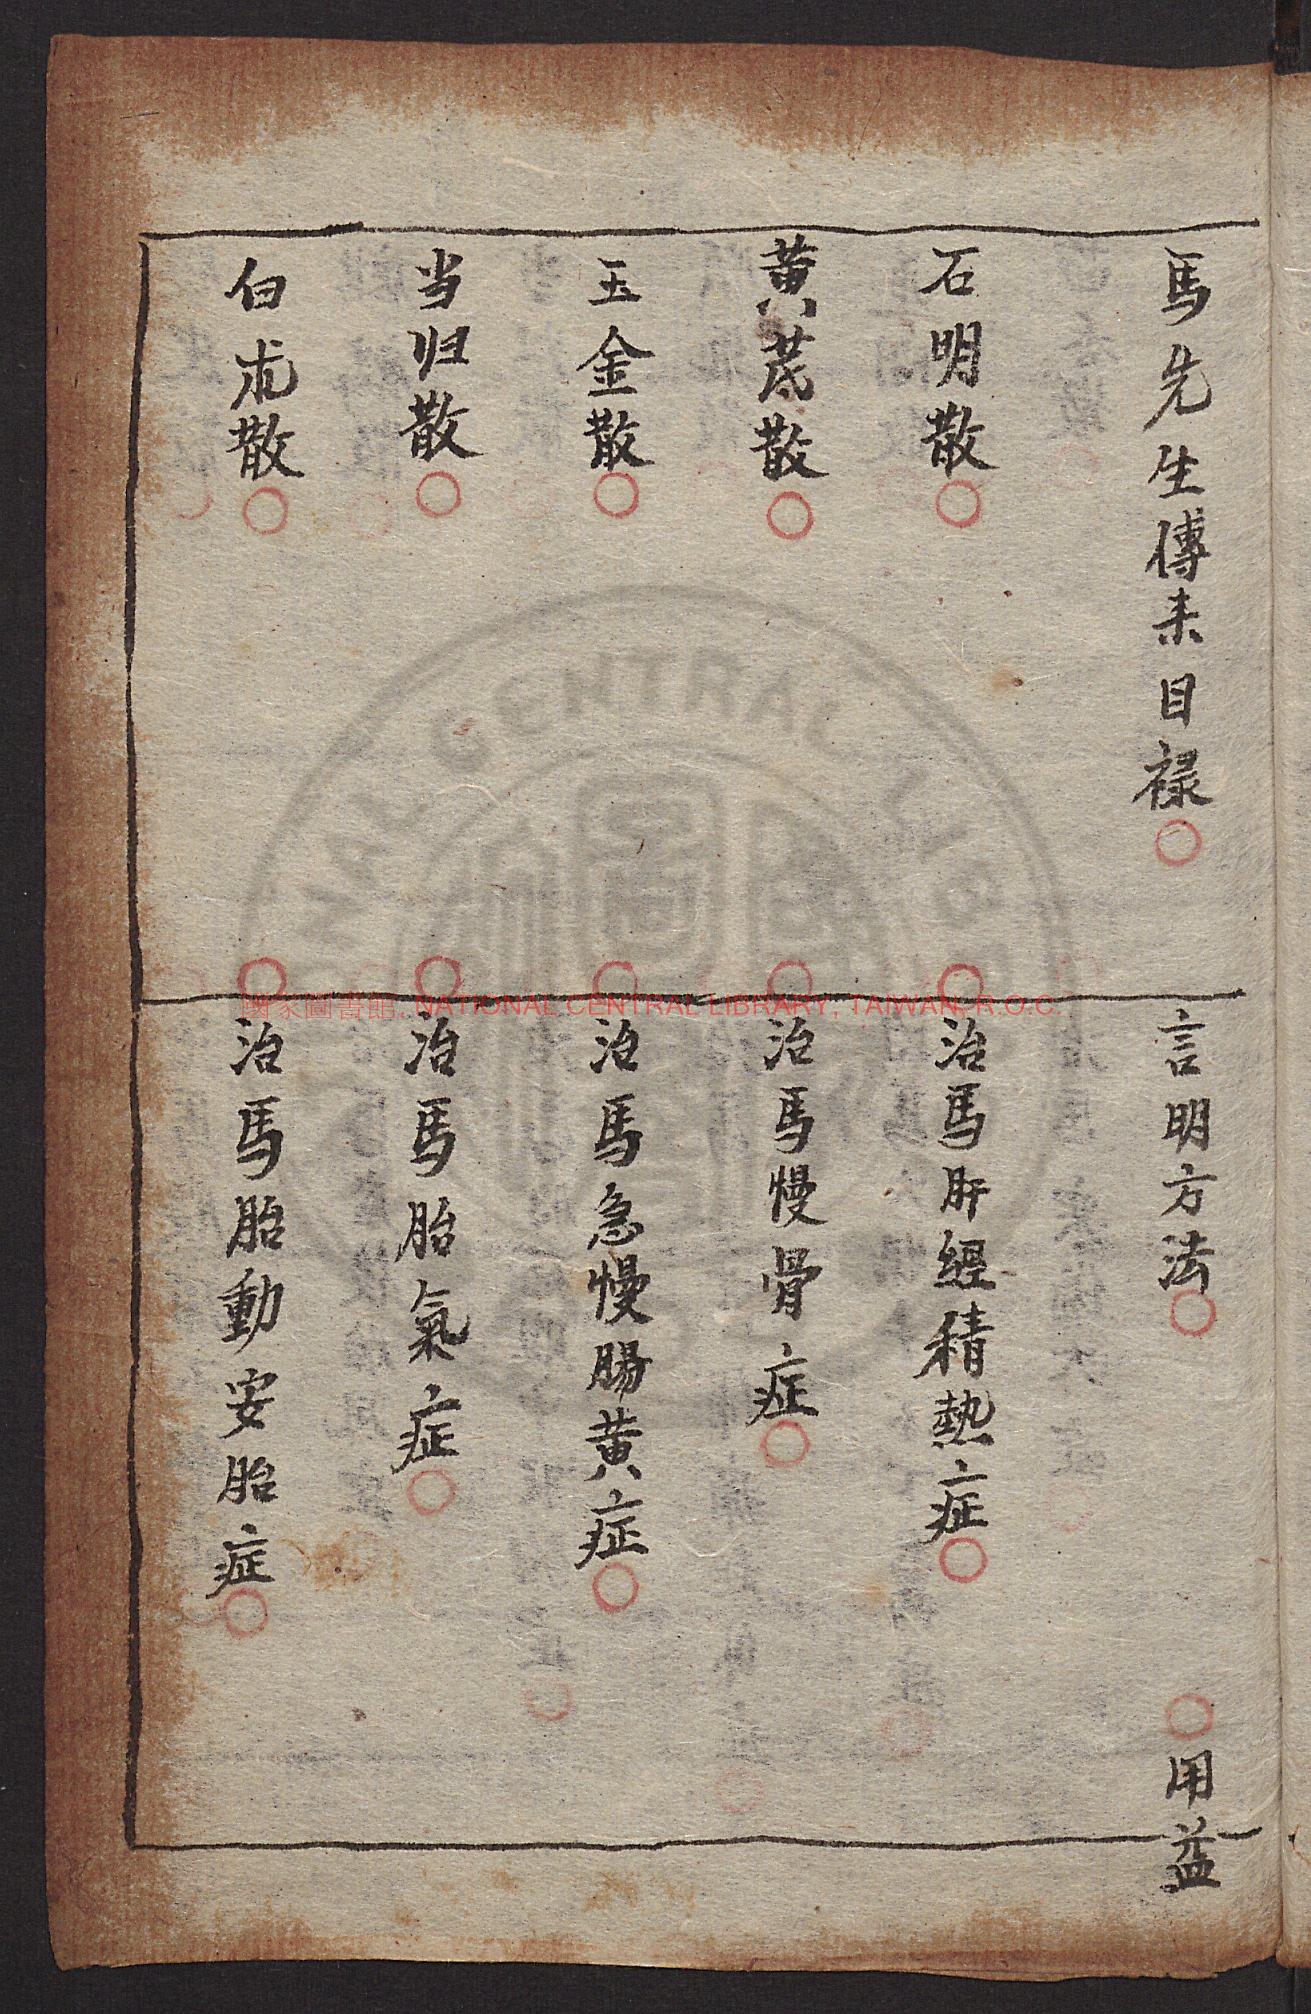 馬先生傳来目禄
言明方法
用益
石明散
治馬肝經積熱症
黄芪散
治馬慢骨症
玉金散
治馬急慢腸黄症
当归散
治馬胎氣症
白朮散
治馬胎動安胎症
國家圖書館, NATIONAL CENTRAL LIBRARY, TAIWAN, R.O.C.